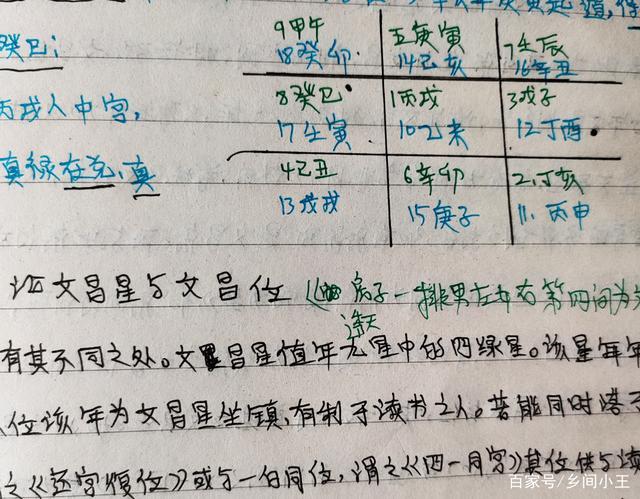 癸巳；
9甲午 五庚寅 7壬辰
18癸卯 14己亥 16辛丑
丙戌人中宫，
8癸巳 1丙戌 3戊子
17壬寅 10乙未 12丁酉
真禄在兑、真
4己丑 6辛卯 2丁亥
13戊戌 15庚子 11、丙申
论文昌星与文昌位 房子一排男左女右第四间为
有其不同之处。文昌星值年九星中的四绿星。该星年年
位该年为文昌星坐镇，有利于读书之人。若能同时
之《还宫复位》或与一白同位，谓之《四一同宫》其位供与读
百家号/乡间小王